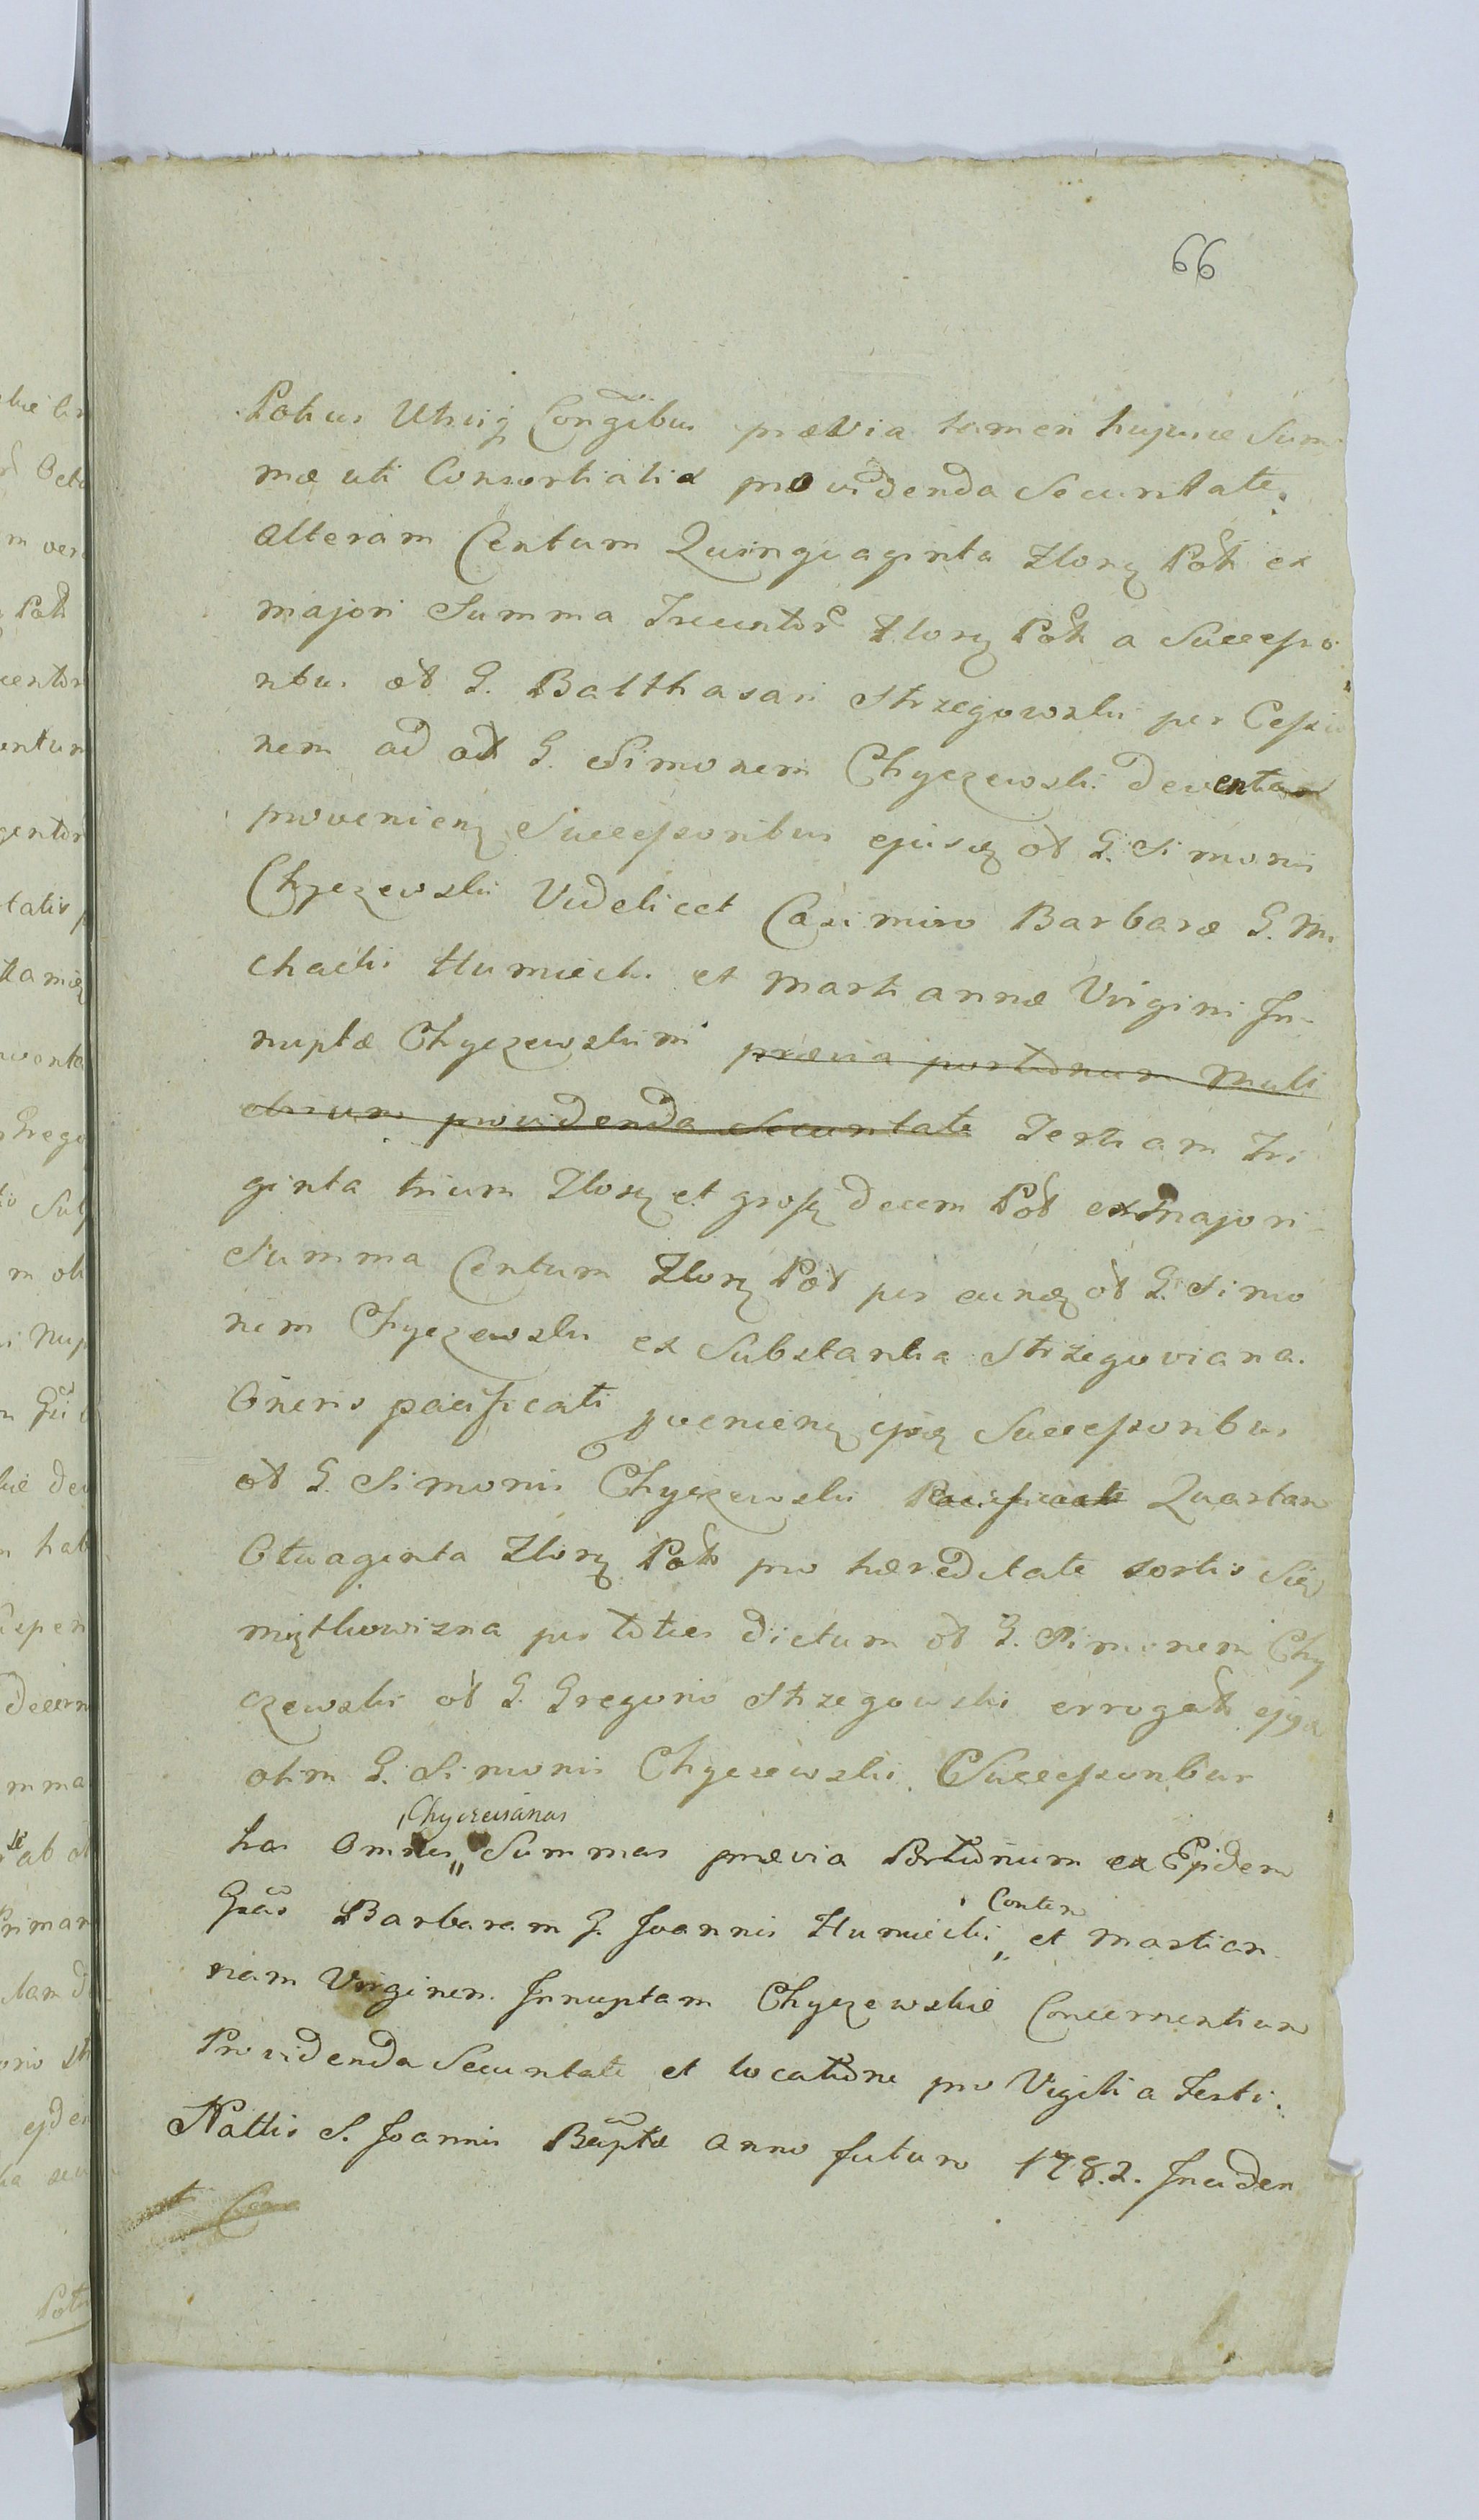 66
Potius Utriq Congibus prævia tamen hujusce Sum
mæ uti Consortialis providenda Securitate.
alteram Centum Quinquaginta Zlorz Poth ex
majori Summa Trecentor Zlorz Poth a Successo
ribus ol G. Balthasari Strzegowski per Cessio
nem ad ol G. Simonem Chyczewski devent
provenienz Successoribus ejusq ol G. Simonis
Chyczewski Videlicet Casimiro Barbaræ G. Mi
chaelis Humiecki et Martiannæ Virgini In-
nuptæ Chyczewskim prævia portionum Muli
ebrium providenda Securitate Tertiam Tri
ginta trium Zlorz et grosz decem Pol ex majori
Summa Centum Zlorz Pol per eundz ol G. Simo
nem Chyczewski ex Substantia Strzegoviana.
Oneris pacificati pvenienz ipsz Successoribus
ol G. Simonis Chyczewski Pacificati Quartam
Octuaginta Zlorz Poth pro hæreditate sortis Sie
miztkowizna per toties dictum ol G. Simonem Chy
czewski ol G. Gregorio Strzegowski errogat
olim G. Simonis Chyczewski Successoribus
Chyczewianas
has Omnes Summas prævia Portionum ex Eisdem
Conten
Gsas Barbaram G. Joannis Humiecki et Martian
nam Virginem Innuptam Chyczewskie Concernentium
Providenda Securitate et locatione pro Vigilia Festi.
Nattis S. Joannis Baptæ Anno futuro 1782. Inciden